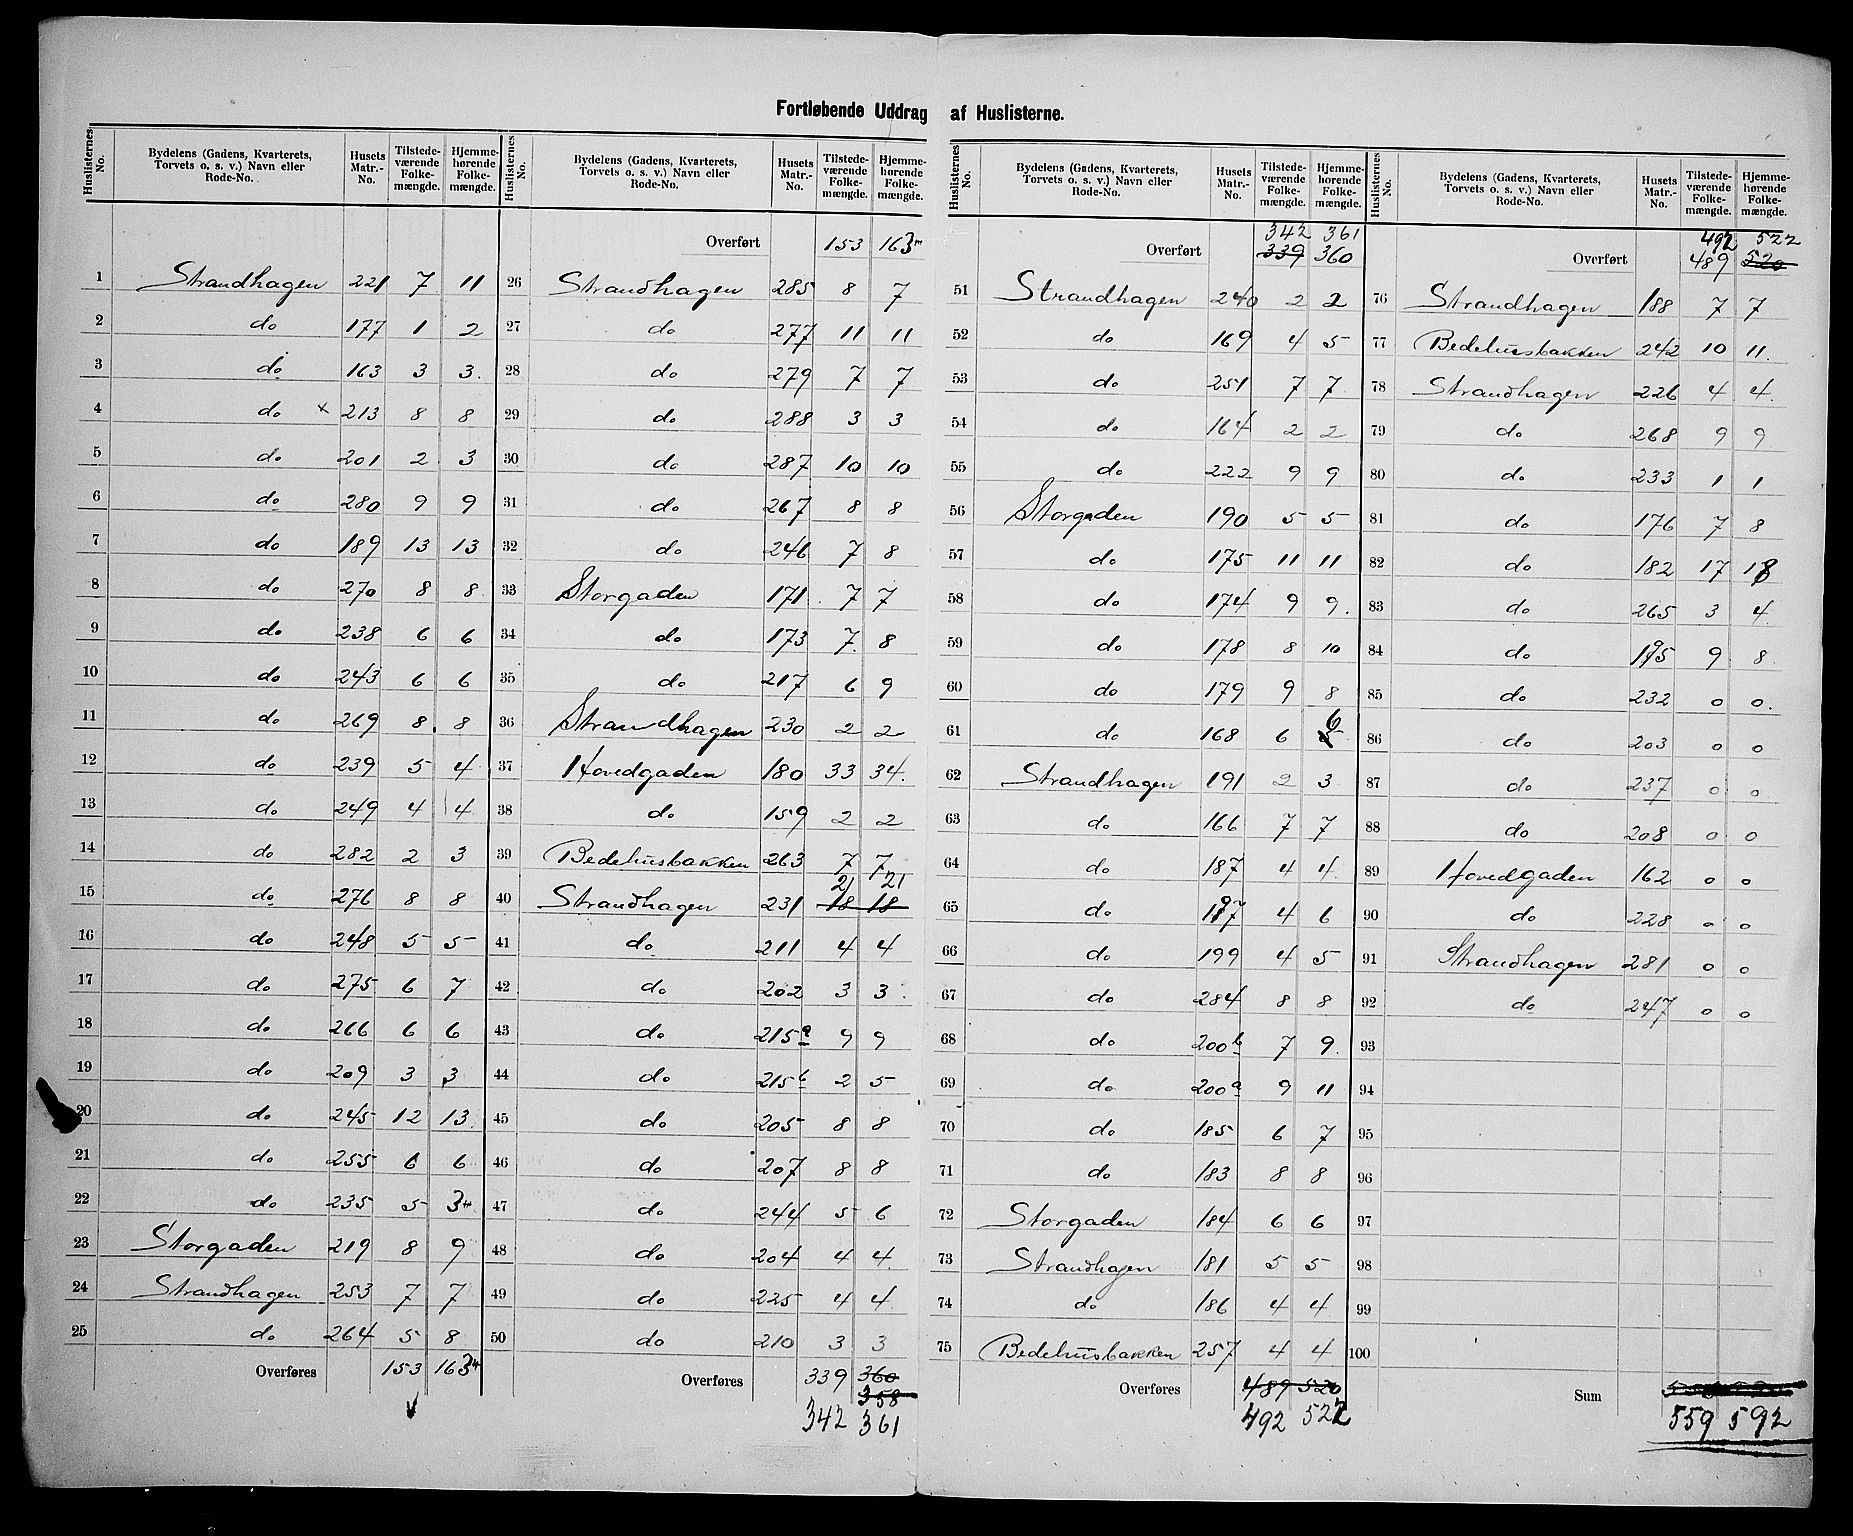 Fortløbende Uddrag af Huslisterne.
Huslisternes No. | Bydelens (Gadens, Kvarterets, Torvets o. s. v.) Navn eller Rode-No. | Husets Matr.-No. | Tilstedeværende Folkemængde. | Hjemmehørende Folkemængde.
1 Strandhagen 221 7 11
2 do 177 1 2
3 do 163 3 3.
4 do × 213 8 8
5 do 201 2 3
6 do 280 9 9
7 do 189 13 13
8 do 270 8 8
9 do 238 6 6
10 do 243 6 6
11 do 269 8. 8
12 do 239 5 4
13 do 249 4 4
14 do 282 2 3
15 do 276 8 8
16 do 248 5 5
17 do 275 6 7
18 do 266 6 6
19 do 209 3 3
20 do 245 12 13
21 do 255 6 6
22 do 235 5 3
23 Storgaden 219 8 9
24 Strandhagen 253 7 7
25 do 264 5 8
Overføres 153 163
Huslisternes No. | Bydelens (Gadens, Kvarterets, Torvets o. s. v.) Navn eller Rode-No. | Husets Matr.-No. | Tilstedeværende Folkemængde. | Hjemmehørende Folkemængde.
Overført 153 163
26 Strandhagen 285 8 7
27 do 277 11 11
28 do 279 7 7
29 do 288 3 3
30 do 287 10 10
31 do 267 8 8
32 do 246 7 8
33 Storgaden 171. 7 7
34 do 173 7. 8
35 do 217 6 9
36 Strandhagen 230 2 2
37 Hovedgaden 180 33 34.
38 do 159 2 2
39 Bedehusbakken 263 7 7
21 21
40 Strandhagen 231 18 18
41 do 211 4 4
42 do 202 3 3.
43 do 215a 9 9
44 do 215b 2 5
45 do 205 8 8
46 do 207 8 8
47 do 244 5 6
48 do 204 4 4
49 do 225 4 4
50 do 210 3 3
Overføres 339 360
358
342 361
Huslisternes No. | Bydelens (Gadens, Kvarterets, Torvets o. s. v.) Navn eller Rode-No. | Husets Matr.-No. | Tilstedeværende Folkemængde. | Hjemmehørende Folkemængde.
342 361
Overført 339 360
51 Strandhagen 240 2 2
52 do 169 4 5
53 do 251 7 7
54 do 164 2 2
55 do 222 9 9
56 Storgaden 190 5 5
57 do 175 11 11
58 do 174 9 9.
59 do 178 8 10
60 do 179 9 8
61 do 168 6 6
62 Strandhagen 191 2 3
63 do 166 7 7
64 do 187 4 4
65 do 197 4 6
66 do 199 4 5
67 do 284 8 8
68 do 200b 7 9.
69 do 200a 9 11
70 do 185 6 7
71 do 183 8 8
72 Storgaden 184 6 6
73 Strandhagen 181 5 5
74 do 186 4 4
75 Bedehusbakken 257 4 4
Overføres 489 520
492 522
Huslisternes No. | Bydelens (Gadens, Kvarterets, Torvets o. s. v.) Navn eller Rode-No. | Husets Matr.-No. | Tilstedeværende Folkemængde. | Hjemmehørende Folkemængde.
492 522
Overført 489 520
76 Strandhagen 188 7 7
77 Bedehusbakken 242 10 11.
78 Strandhagen 226 4 4.
79 do 268 9 9
80 do 233 1 1
81 do 176 7 8
82 do 182 17 18
83 do 265 3 4
84 do 195 9 8
85 do 232 0 0.
86 do 203 0 0
87 do 237 0 0
88 do 208 0 0
89 Hovedgaden 162 0 0
90 do 228 0 0
91 Strandhagen 281 0 0
92 do 247 0 0
93
94
95
96
97
98
99
100
Sum
559 592